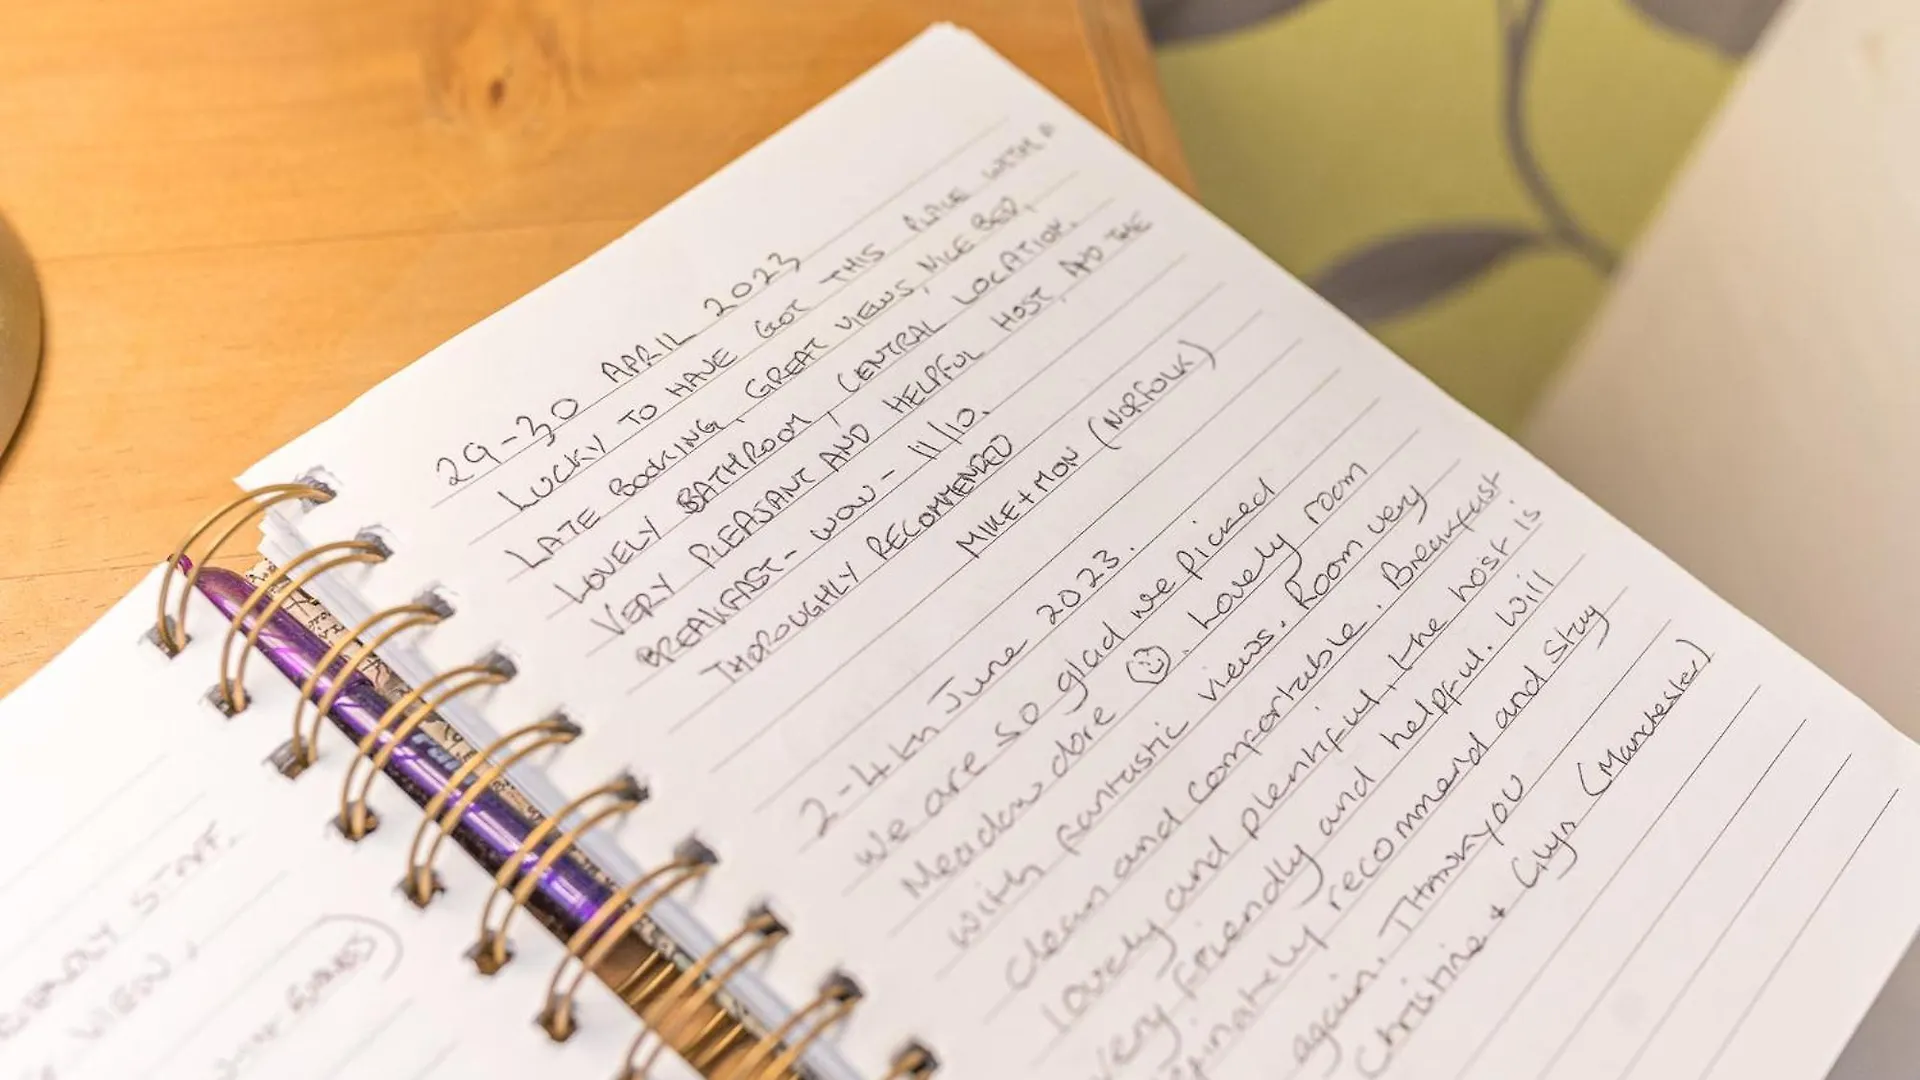 STAFF.
VIEW,
29-30 APRIL 2023
LUCKY TO HAVE GOT THIS PLACE WITH A
LATE BOOKING, GREAT VIEWS, NICE BED,
LOVELY BATHROOM, CENTRAL LOCATION.
VERY PLEASANT AND HELPFUL HOST AND THE
BREAKFAST- WOW - 11/10.
THOROUGHLY RECOMMENDED
MIKE + MON (NORFOLK)
2-4th June 2023.
We are so glad we picked
Meadow dore ☺. Lovely room
with fantastic views. Room very
clean and comfortable. Breakfast
lovely and plentiful, the host is
very friendly and helpful. Will
recommend and stay
again. Thankyou
Christine + Glyn (Manchester)